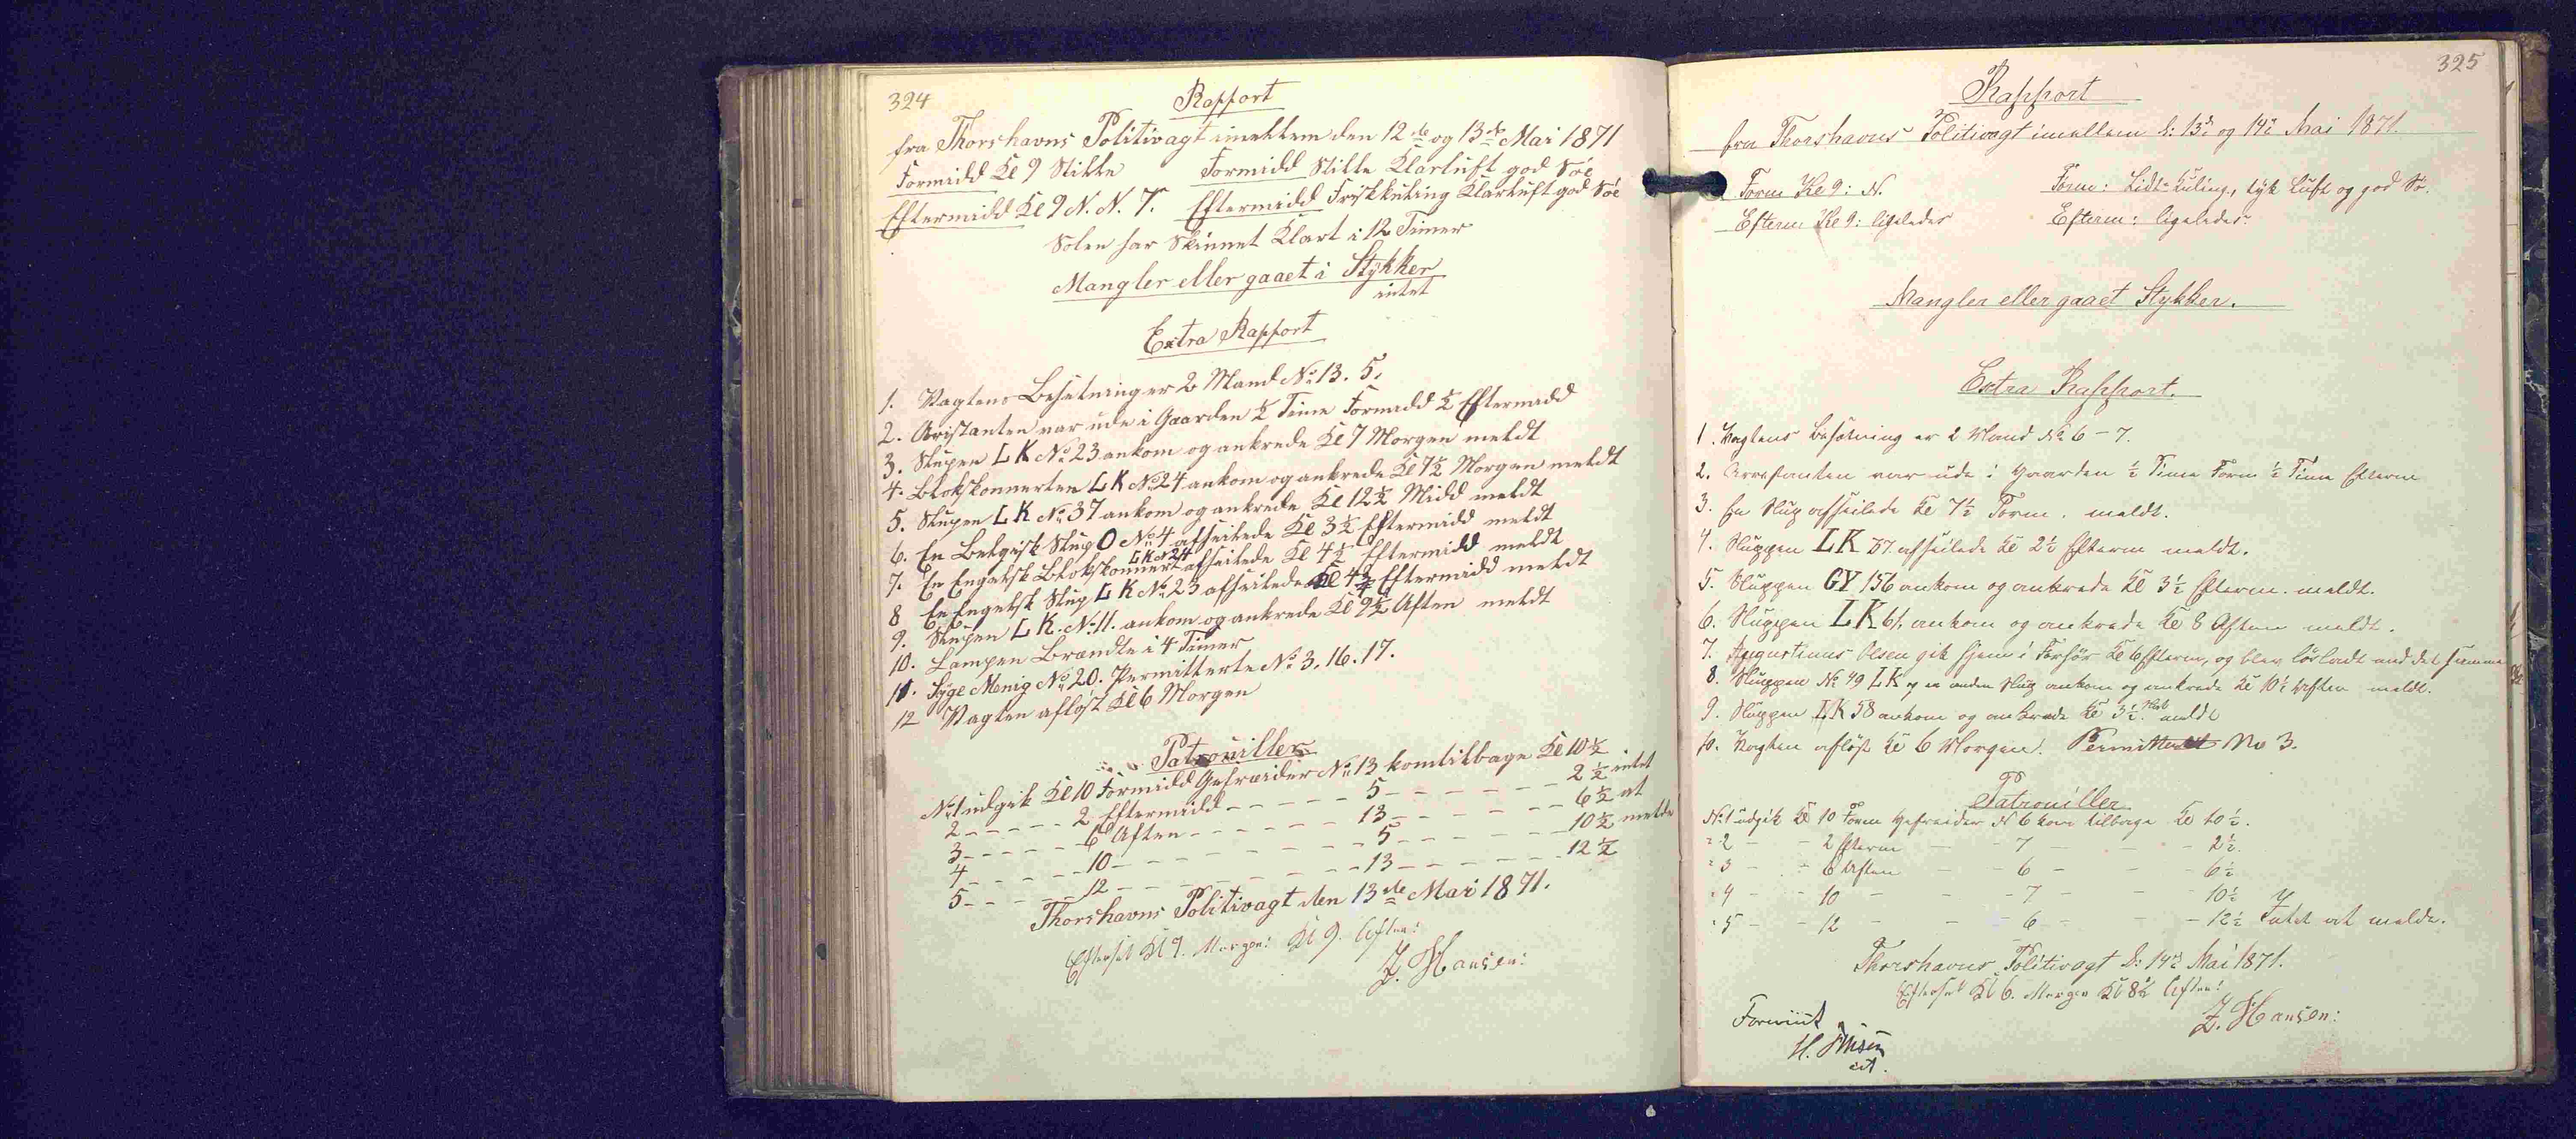 324
Rapport
fra Thorshavns Politivagt imellem den 12te og 13de Mai 1871
Formidd Kl 9 Stille Formidd Stille Klarluft god Söe
Eftermidd Kl 9 N. N. T. Eftermidd Friskkuling Klarluft god Söe
Solen har Skinnet Klart i 12 Timer
Mangler eller gaaet i Stykker
intet
Extra Rapport
1. Vagtens Besetning er 2 Mand No 13. 5.
2. Aristanten var ude i Gaarden ½ Time Formidd ½ Eftermidd
3. Slupen LK No 23 ankom og ankrede Kl 7 Morgen meldt
4. Blokskonnerten LK No 24 ankom og ankrede Kl 7½ Morgen meldt
5. Slupen LK No 37 ankom og ankrede Kl 12½ Midd meldt
6. En Belgisk Slup O No 4 afseilede Kl 3½ Eftermidd meldt
7. En Engelsk Blokskonnert LK No 24 afseilede Kl 4½ Eftermidd meldt
8 En Engelsk Slup LK No 23 afseilede Kl 4¾ Eftermidd meldt
9. Slupen LK. No 11. ankom og ankrede Kl 9½ Aften meldt
10. Lampen Brændte i 4 Timer
11. Syge Menig No 20. Permitterte No 3. 16. 17.
12 Vagten aflöst Kl 6 Morgen
Patrouiller
No 1 udgik Kl 10 Formidd Gefreider No 13 kom tilbage Kl 10½
2 - - - - - 2 Eftermidd - - - - - 5 - - - - - - 2½ intet
3 - - - - - 6 Aften - - - - - - 13 - - - - - - 6½ at
4 - - - - - 10 - - - - - - - - 5 - - - - - - 10½ melde
5 - - - - - 12 - - - - - - - - 13 - - - - - - 12½
Thorshavns Politivagt den 13de Mai 1871.
Efterset Kl 9. Morgen: Kl 9. Aften:
Z. Hansen:
325
Rapport
fra Thorshavns Politivagt imellem d: 13de og 14de Mai 1871.
Form Kl 9: N. Form: Lidt Kuling, tyk Luft og god Sö.
Efterm: Kl 9: ligeledes Efterm: ligeledes
Mangler eller gaaet Stykker.
Extra Rapport.
1. Vagtens Besætning er 2 Mand No 6 - 7.
2. Arrestanten var ude i Gaarden ½ Time Form ½ Time Efterm
3. En Slup afseilede Kl 7½ Form. meldt.
4. Sluppen LK 37 afseilede Kl 2½ Efterm meldt.
5. Sluppen GY 156 ankom og ankrede Kl 3½ Efterm. meldt.
6. Sluppen LK 61. ankom og ankrede Kl 8 Aften meldt.
7. Augustinus Olsen gik hjem i Forhör Kl 6 Efterm, og blev lösladt med det samme
8. Sluppen No 49 LK og en anden Slup ankom og ankrede Kl 10½ Aften meldt.
9. Sluppen LK 58 ankom og ankrede Kl 3½ meldt
10. Vagten aflöst Kl 6 Morgen. Permitteret No 3.
Patrouiller
No 1 udgik Kl 10 Form Gefreider No 6 kom tilbage Kl 10½.
" 2 - - 2 Efterm - - 7 - - - 2½.
" 3 - - 6 Aften - - 6 - - - 6½
" 4 - - 10 - - - 7 - - - 10½
" 5 - - 12 - - - 6 - - - 12½ Intet at melde.
Thorshavns Politivagt d: 14de Mai 1871.
Efterset Kl 6. Morgen Kl 8½ Aften:
Z. Hansen: